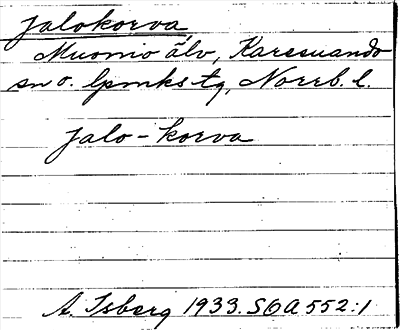 Jalokorva
Muonio älv, Karesuando
sn o. lpmks tg, Norrb. l.
Jalo-korva
A. Isberg 1933. SOA 552:1